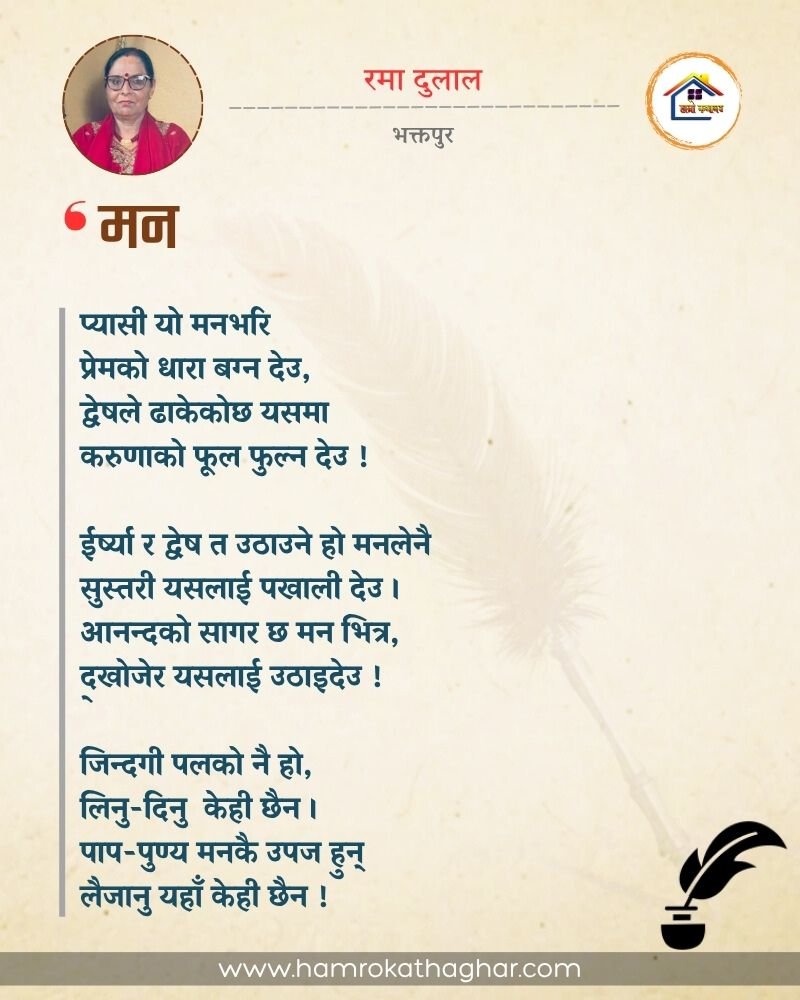 रमा दुलाल
भक्तपुर
हाम्रो कथाघर
❛मन
प्यासी यो मनभरि
प्रेमको धारा बग्न देउ,
द्वेषले ढाकेकोछ यसमा
करुणाको फूल फुल्न देउ !
ईर्ष्या र द्वेष त उठाउने हो मनलेनै
सुस्तरी यसलाई पखाली देउ ।
आनन्दको सागर छ मन भित्र,
द्खोजेर यसलाई उठाइदेउ !
जिन्दगी पलको नै हो,
लिनु-दिनु केही छैन ।
पाप-पुण्य मनकै उपज हुन्
लैजानु यहाँ केही छैन !
www.hamrokathaghar.com